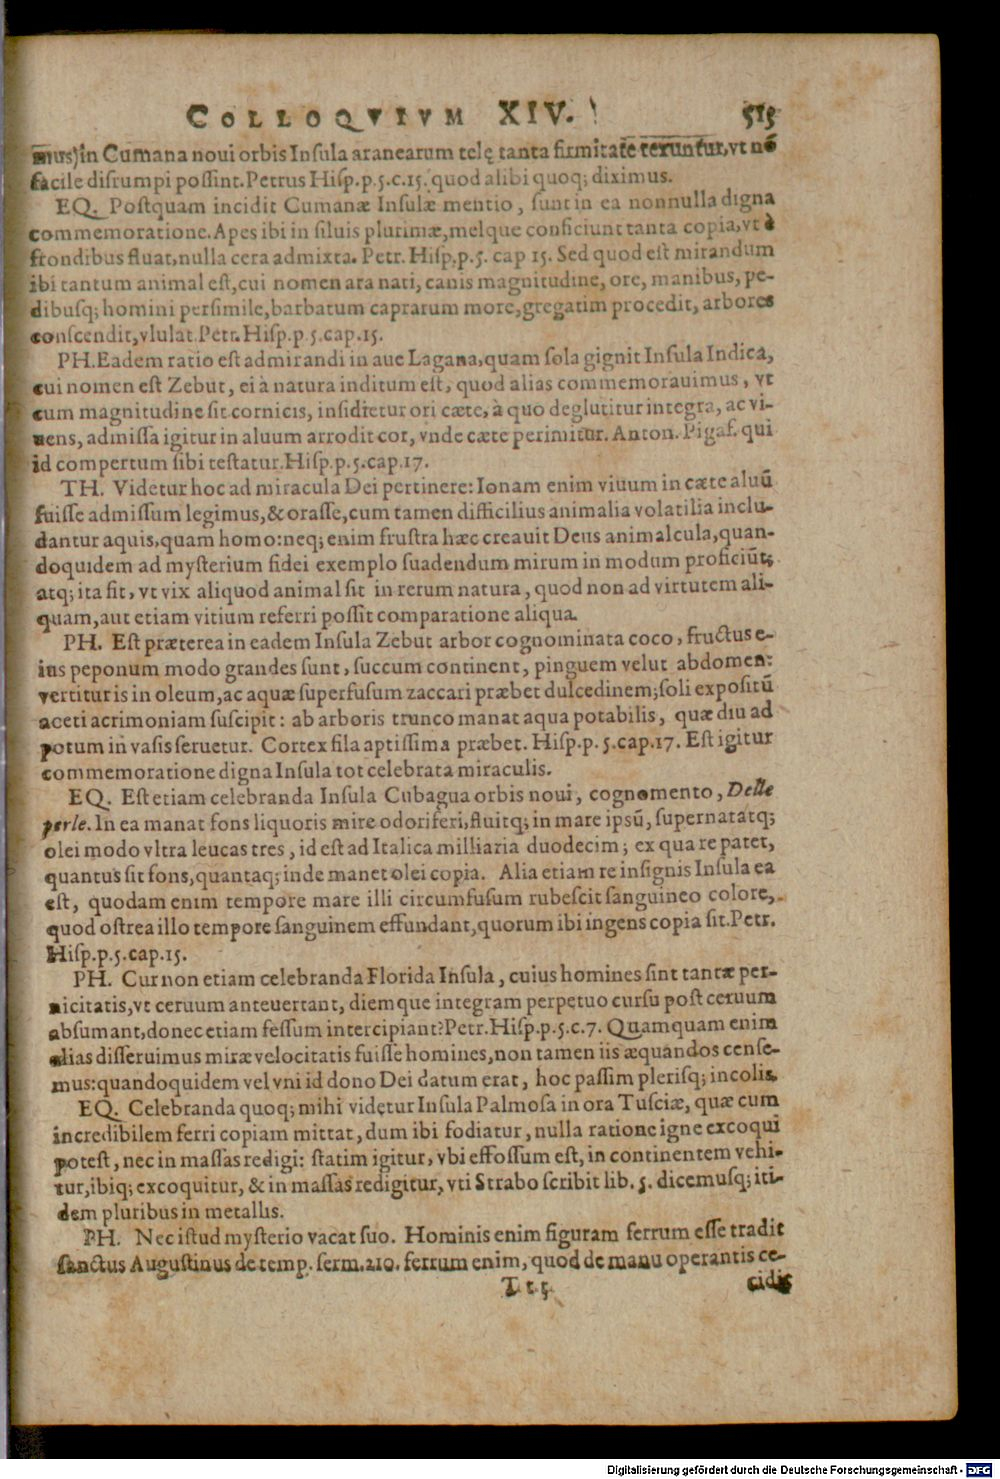 COLLOQVIVM XIV. 515
mus) in Cumana noui orbis Insula aranearum telę tanta firmitate teruntur, vt nō
facile disrumpi possint. Petrus Hisp. p. 5. c. 15. quod alibi quoq; diximus.
EQ. Postquam incidit Cumanæ Insulæ mentio, sunt in ea nonnulla digna
commemoratione. Apes ibi in siluis plurimæ, melque conficiunt tanta copia, vt è
frondibus fluat, nulla cera admixta. Petr. Hisp. p. 5. cap 15. Sed quod est mirandum
ibi tantum animal est, cui nomen aranati, canis magnitudine, ore, manibus, pe-
dibusq; homini persimile, barbatum caprarum more, gregatim procedit, arbores
conscendit, vlulat. Petr. Hisp. p. 5. cap. 15.
PH. Eadem ratio est admirandi in aue Lagana, quam sola gignit Insula Indica,
cui nomen est Zebut, ei à natura inditum est, quod alias commemorauimus, vt
cum magnitudine sit cornicis, insidietur ori cæte, à quo deglutitur integra, ac vi-
uens, admissa igitur in aluum arrodit cor, vnde cæte perimitur. Anton. Pigaf. qui
id compertum sibi testatur. Hisp. p. 5. cap. 17.
TH. Videtur hoc ad miracula Dei pertinere: Ionam enim viuum in cæte aluū
fuisse admissum legimus, & orasse, cum tamen difficilius animalia volatilia inclu-
dantur aquis, quam homo: neq; enim frustra hæc creauit Deus animalcula, quan-
doquidem ad mysterium fidei exemplo suadendum mirum in modum proficiūt;
atq; ita fit, vt vix aliquod animal sit in rerum natura, quod non ad virtutem ali-
quam, aut etiam vitium referri possit comparatione aliqua.
PH. Est præterea in eadem Insula Zebut arbor cognominata coco, fructus e-
ius peponum modo grandes sunt, succum continent, pinguem velut abdomen:
vertitur is in oleum, ac aquæ superfusum zaccari præbet dulcedinem; soli expositū
aceti acrimoniam suscipit: ab arboris trunco manat aqua potabilis, quæ diu ad
potum in vasis seruetur. Cortex fila aptissima præbet. Hisp. p. 5. cap. 17. Est igitur
commemoratione digna Insula tot celebrata miraculis.
EQ. Est etiam celebranda Insula Cubagua orbis noui, cognomento, Delle
perle. In ea manat fons liquoris mire odoriferi, fluitq; in mare ipsū, supernatatq;
olei modo vltra leucas tres, id est ad Italica milliaria duodecim; ex qua re patet,
quantus sit fons, quantaq; inde manet olei copia. Alia etiam re insignis Insula ea
est, quodam enim tempore mare illi circumfusum rubescit sanguineo colore,
quod ostrea illo tempore sanguinem effundant, quorum ibi ingens copia sit. Petr.
Hisp. p. 5. cap. 15.
PH. Cur non etiam celebranda Florida Insula, cuius homines sint tantæ per-
nicitatis, vt ceruum anteuertant, diemque integram perpetuo cursu post ceruum
absumant, donec etiam fessum intercipiant? Petr. Hisp. p. 5. c. 7. Quamquam enim
alias disseruimus miræ velocitatis fuisse homines, non tamen iis æquandos cense-
mus: quandoquidem vel vni id dono Dei datum erat, hoc passim plerisq; incolis.
EQ. Celebranda quoq; mihi vidętur Insula Palmosa in ora Tusciæ, quæ cum
incredibilem ferri copiam mittat, dum ibi fodiatur, nulla ratione igne excoqui
potest, nec in massas redigi: statim igitur, vbi effossum est, in continentem vehi-
tur, ibiq; excoquitur, & in massas redigitur, vti Strabo scribit lib. 5. dicemusq; iti-
dem pluribus in metallis.
PH. Nec istud mysterio vacat suo. Hominis enim figuram ferrum esse tradit
sanctus Augustinus de temp. serm. 210. ferrum enim, quod de manu operantis ce-
T t 5 cidit
Digitalisierung gefördert durch die Deutsche Forschungsgemeinschaft - DFG